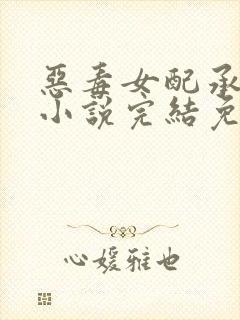 惡毒女配承
小說完結免
心媛雅也